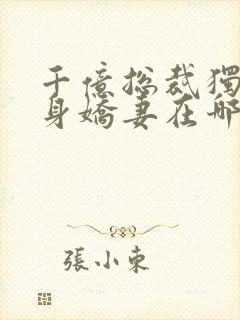 千億總裁獨
身嬌妻在哪
張小東